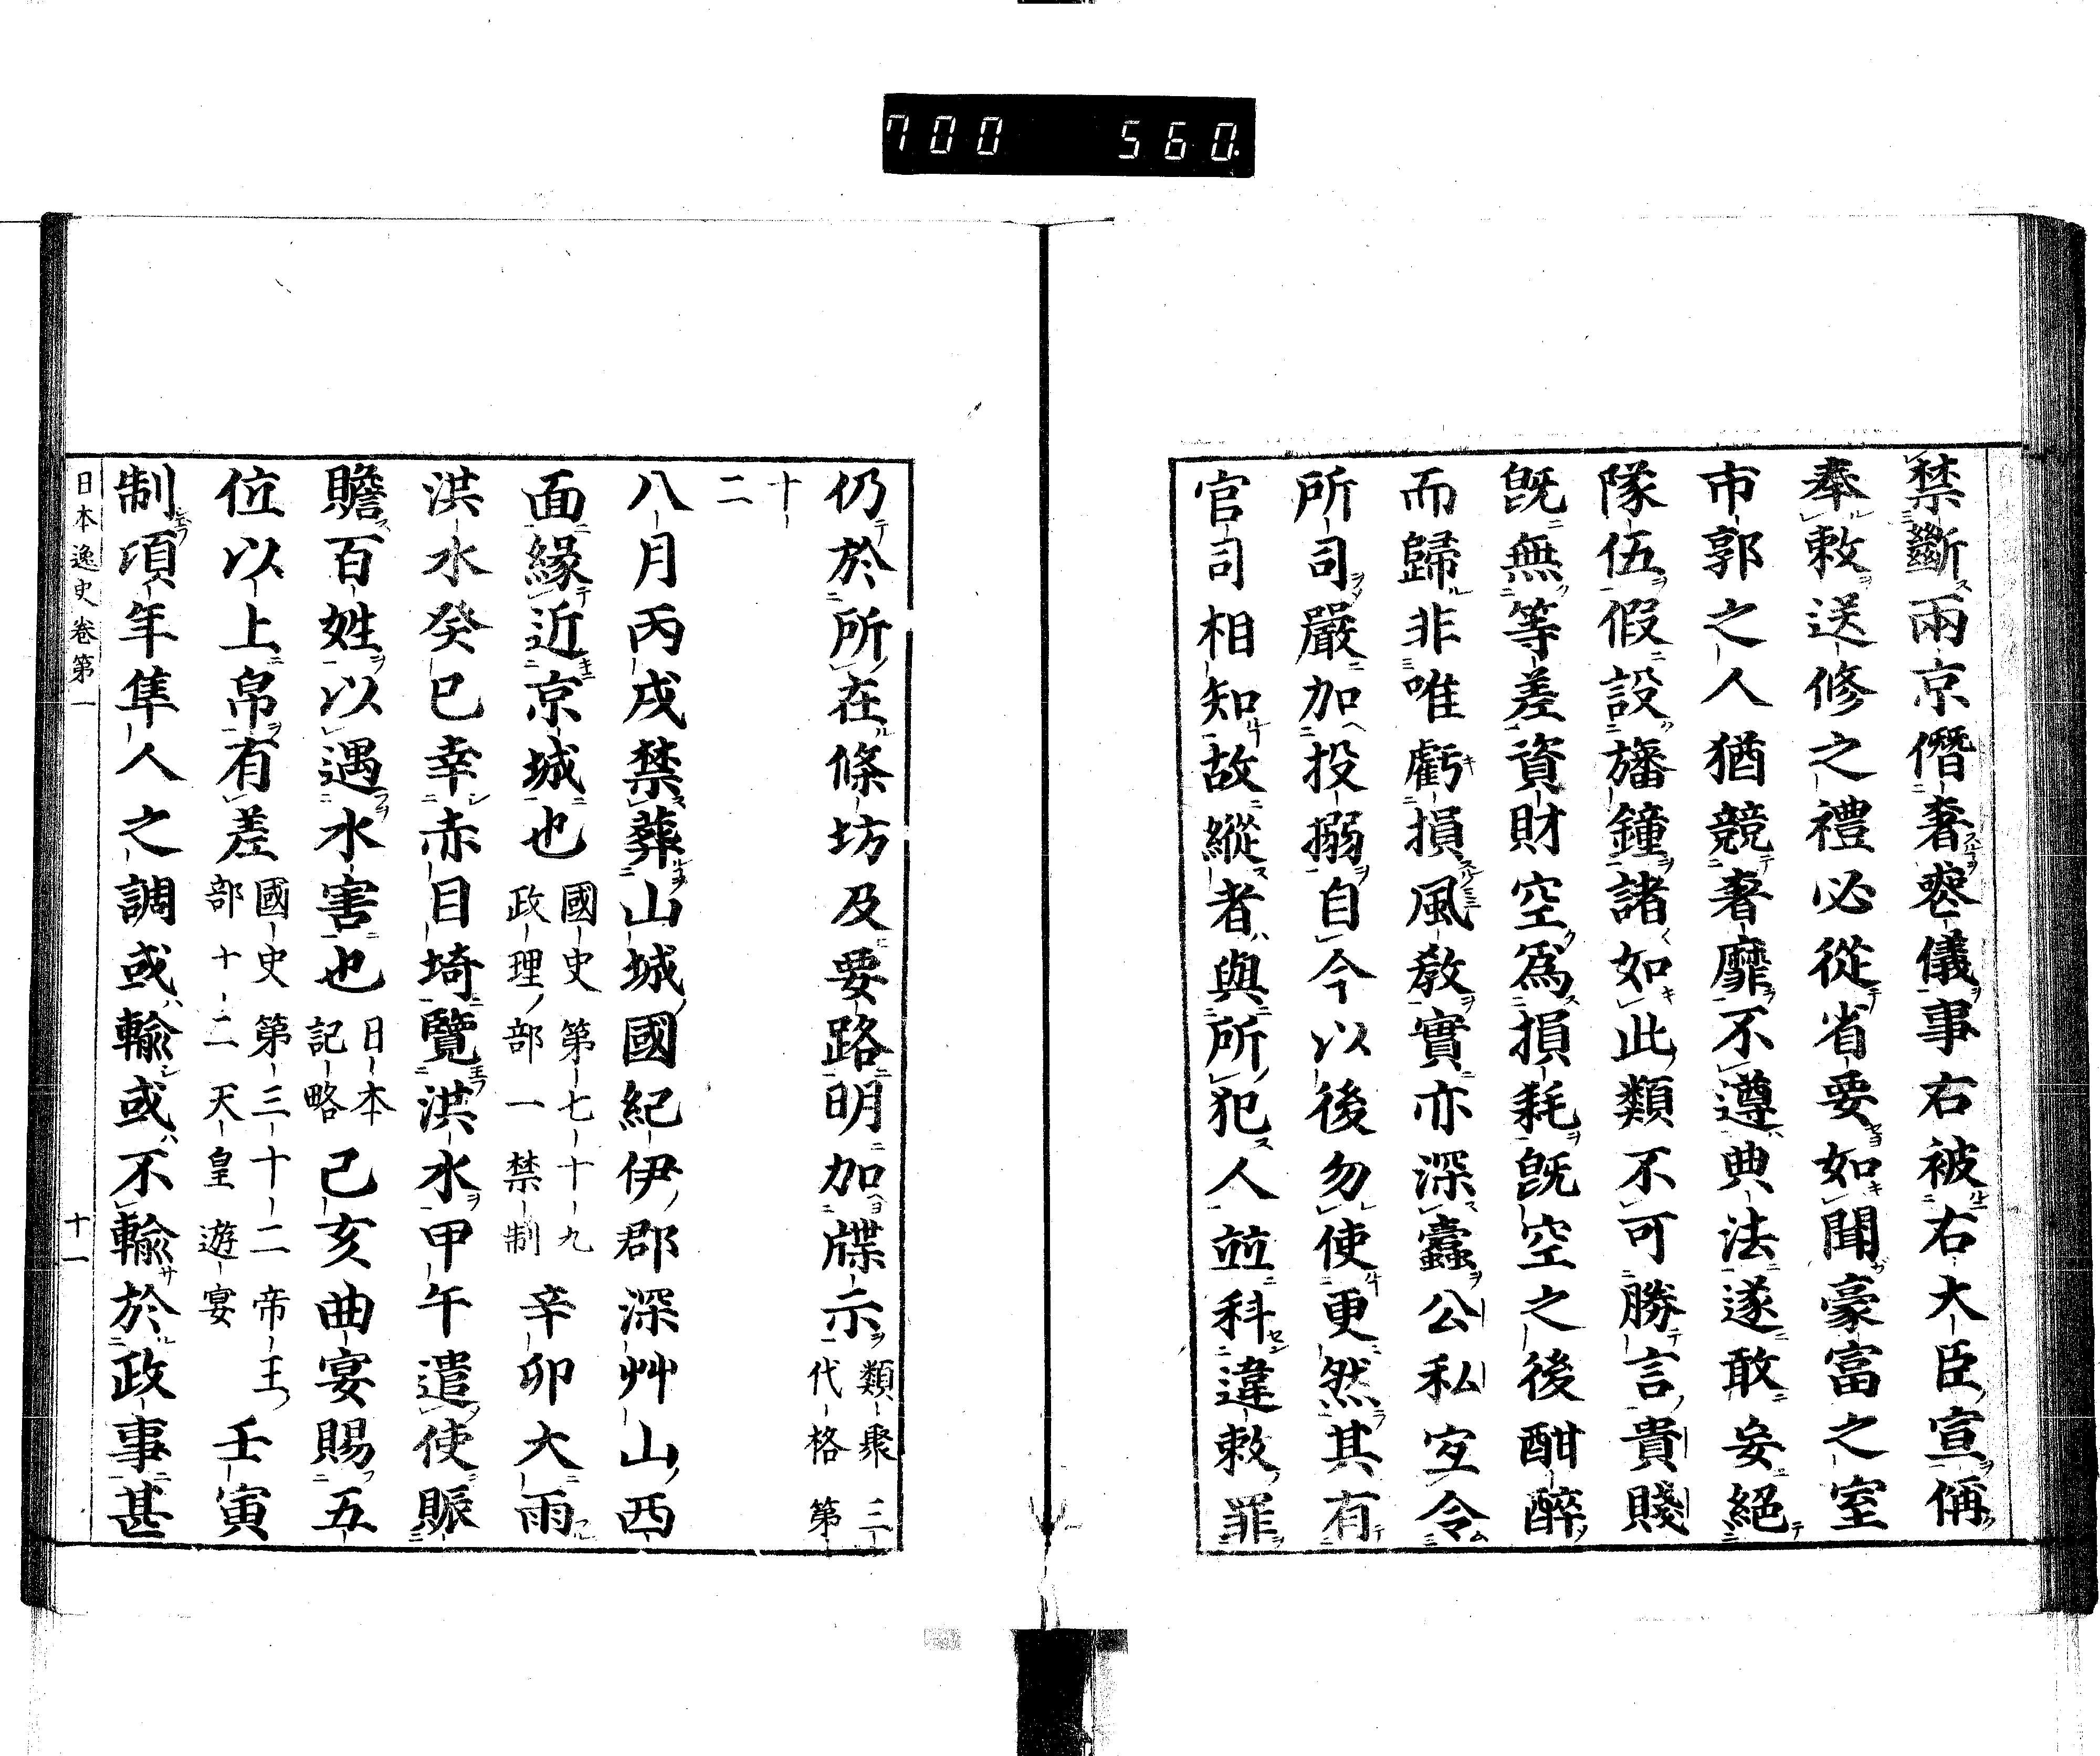 700 560
禁斷兩京僭奢喪儀事右被右大臣宣偁
奉敕送修之禮必從省要如聞豪富之室
市郭之人猶競奢靡不遵典法遂敢妄絕
隊伍假設旛鐘諸如此類不可勝言貴賤
旣無等差資財空爲損耗旣空之後酣醉
而歸非唯虧損風敎實亦深蠹公私宜令
所司嚴加投搦自今以後勿使更然其有
官司相知故縱者與所犯人並科違敕罪
仍於所在條坊及要路明加牒示類聚三代格第
十二
八月丙戌禁葬山城國紀伊郡深艸山西
面緣近京城也國史第七十九政理部一禁制辛卯大雨
洪水癸巳幸赤目埼覽洪水甲午遣使賑
贍百姓以遇水害也日本記略己亥曲宴賜五
位以上帛有差國史第三十二帝王部十二天皇遊宴壬寅
制頃年隼人之調或輸或不輸於政事甚
日本逸史卷第一 十一